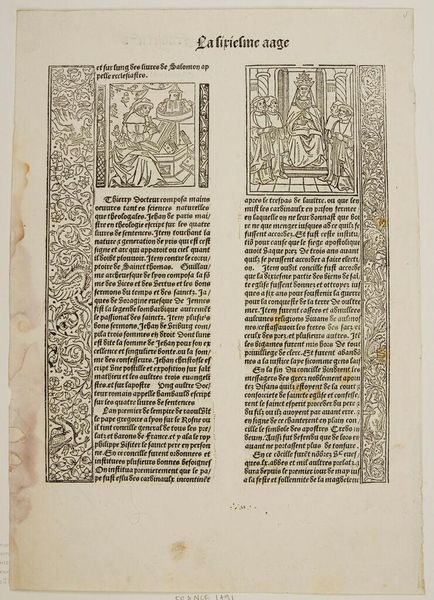 La sixiesme aage
et sur lung des livres de Salomon ap
pelle ecclesiastes.
Thierry Docteur composa mains
oeuvres tant es sciences naturelles
que theologales. Jehan de paris mai/
stre en theologie escript sur les quatre
livres de sentences. Item touchant la
nature & generation de pris que est cest
signe et arc qui apparoit ou ciel quant
il doibt plouvoir. Item contre le corru/
ptoire de Sainct thomas. Guillau/
me archevesque de lyon composa la so/
me des Vices et des Vertus et les bons
sermons du temps et des sainctz. Ja/
ques de Voragine evesque de Jennes
fist la legende lombardique autremēt
le passional des sainctz. Item plusieurs
bons sermons. Jehan de Friburg com/
pila trois sommes en droit Dont lune
est dite la somme de Jehan pour son ex
cellence et singuliere bonte. ou la som/
me des confesseurs. Jehan
cript une postille et exposition sur sait
mathieu et les aultres trois euvangeli
stes. et sur lapostre Ung aultre Doc/
teur romain appelle hambauld escript
sur les quatre livres de sentences
Lan premier de lempire de raoul
le pape gregoire a lyon sur le Rosne ou
il tint concille general de tous les pre/
latz et barons de France et y ala le roy
phelippe Visiter le sainct pere en person
ne. En ce concille furent ordonnees et
instituees plusieurs bonnes besoignes
On institua premierement que le pa/
pe fust esleu des cardinaulx incontinēt
apres le trespas de laultre. ou que len
mist les cardinaulx en prison fermee
en laquelle on ne leur donnast que boi
re ne que menger jusques ad ce quilz se
fussent accordez. Et fust ceste institu
tiō pour cause que le siege apostolique
avoit Vaque pres de trois ans avant
quilz se peussent accorder a faire electi
on. Item oudit concille fust accorde
que la dixiesme partie des biens de sai
cte eglise fussent donnes et ottroyez jus
ques a six ans pour soustenir la guerre
pour la conqueste de la terre De oultre
mer. Item furent cassees et adnullees
aulcunes religions Vivans de aulmos
nes. cestassavoir les freres des sacz. et
ceulx des prez. et plusieurs autres. Itē
les bigames furent mis hors de tout
privillege de clerc. Et furent abandō
nes a la justice laye sicomme gens laiz
En la fin Du concille Vindrent les
messagers des grecz noblement apoin
tes Disans quilz estoyent de la court
conforcete de saincte eglise et confesse/
rent le sainct esperit proceder du pere &
du filz ou ilz avoyent par avant erre. &
en signe de ce chanterent en plain con/
cille le simbole des apostres Credo in
deum. Aussi fut defendu que de lors en
avant ne portassent plus de tonsure.
En ce cōcille furēt
ques. lx. abbes et mil aultres prelatz. &
dura depuis le premier iour de may ius
a la feste et sollennite de la magdelene
FRANCE 1491